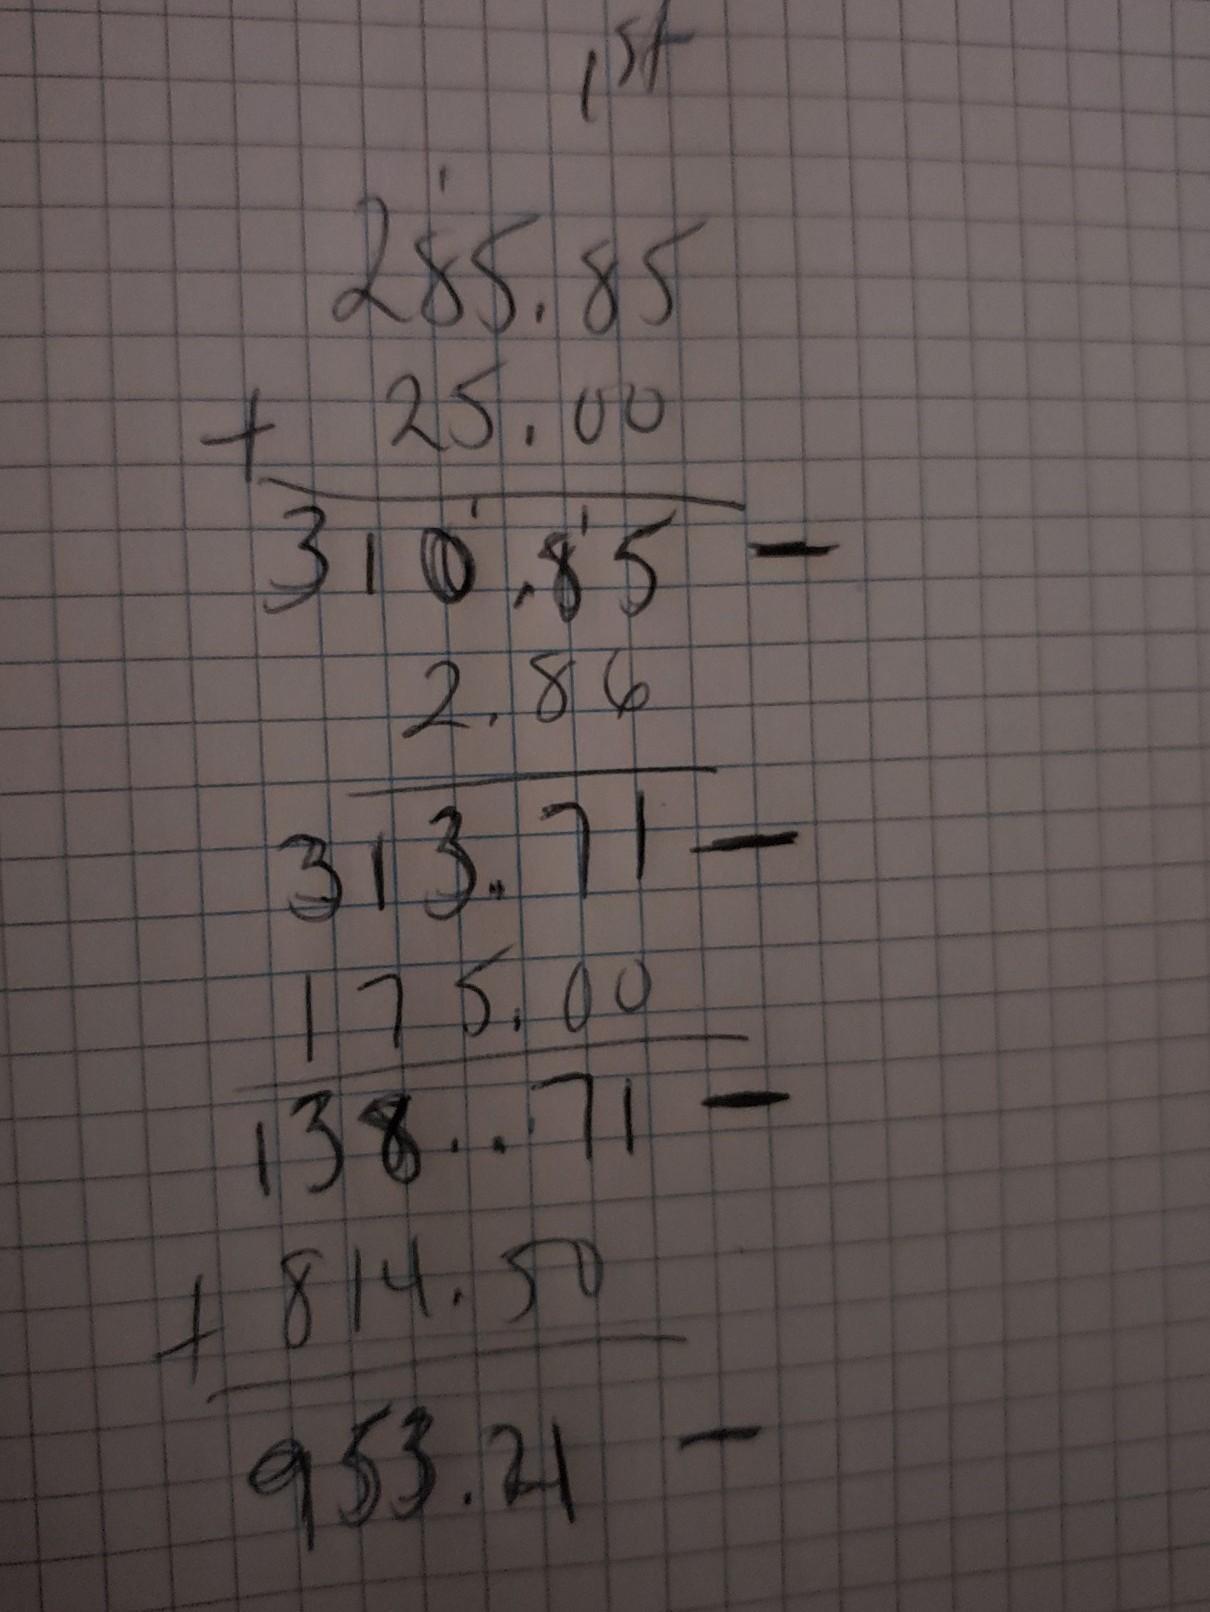 1st
1
285.85
+ 25.00
1 1
310.85 —
2.86
313.71 —
175.00
138..71 —
+ 814.50
953.21 —